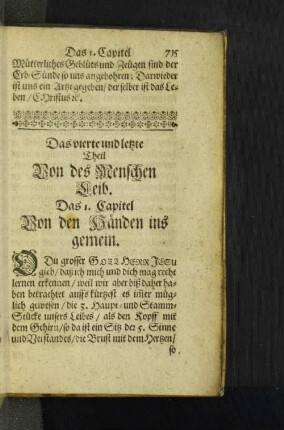 Das 1. Capitel 715
Mütterliches Geblüts und Zeugen sind der
Erb-Sünde so uns angebohren; Darwieder
ist uns ein Artzt gegeben / der selber ist das Le-
ben / CHristus ꝛc.
Das vierte und letzte
Theil
Von des Menschen
Leib.
Das 1. Capitel
Von den Händen ins
gemein.
O Du grosser GOTT HERR JESU
gieb / daß ich mich und dich mag recht
lernen erkennen / weil wir aber biß daher ha-
ben betrachtet auffs kürtzest es im̃er müg-
lich gewesen / die 3. Haupt- und Stamm-
Stücke unsers Leibes / als den Kopff mit
dem Gehirn / so da ist ein Sitz der 5. Sinne
und Verstandes / die Brust mit dem Hertzen /
so